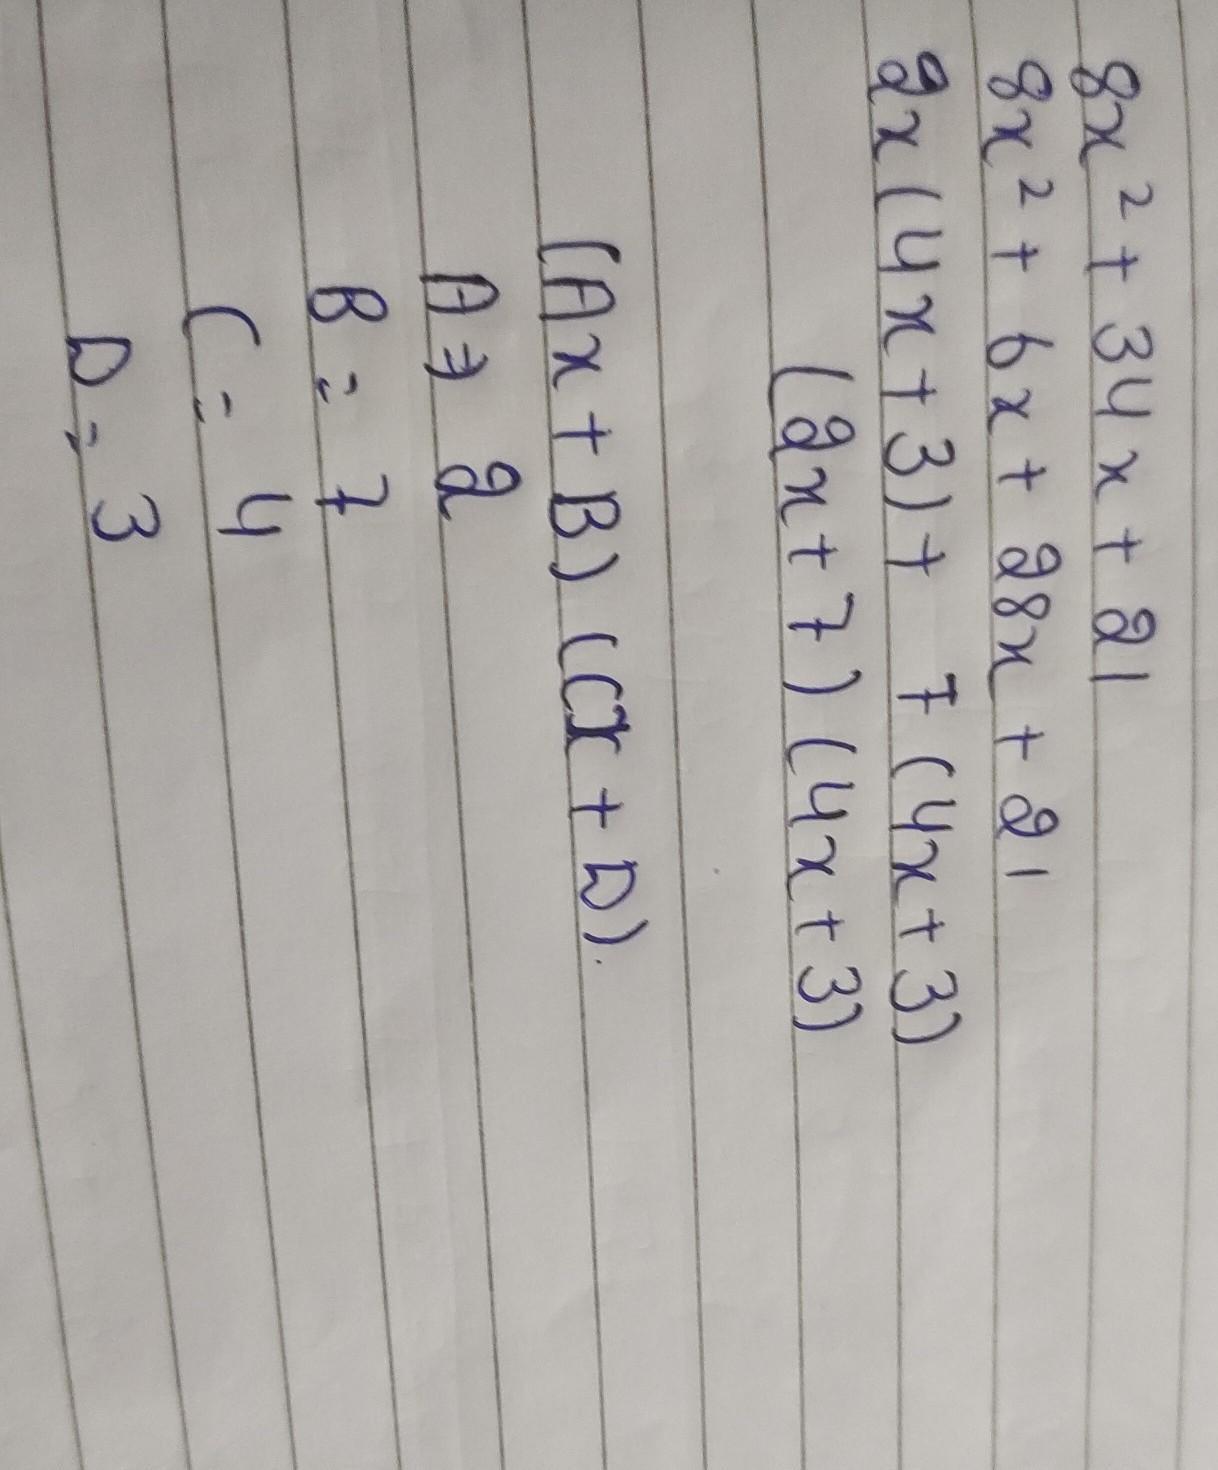 8x² + 34x + 21
8x² + 6x + 28x + 21
2x(4x+3) + 7(4x+3)
(2x+7)(4x+3)
(Ax+B)(Cx+D).
A = 2
B = 7
C = 4
D = 3